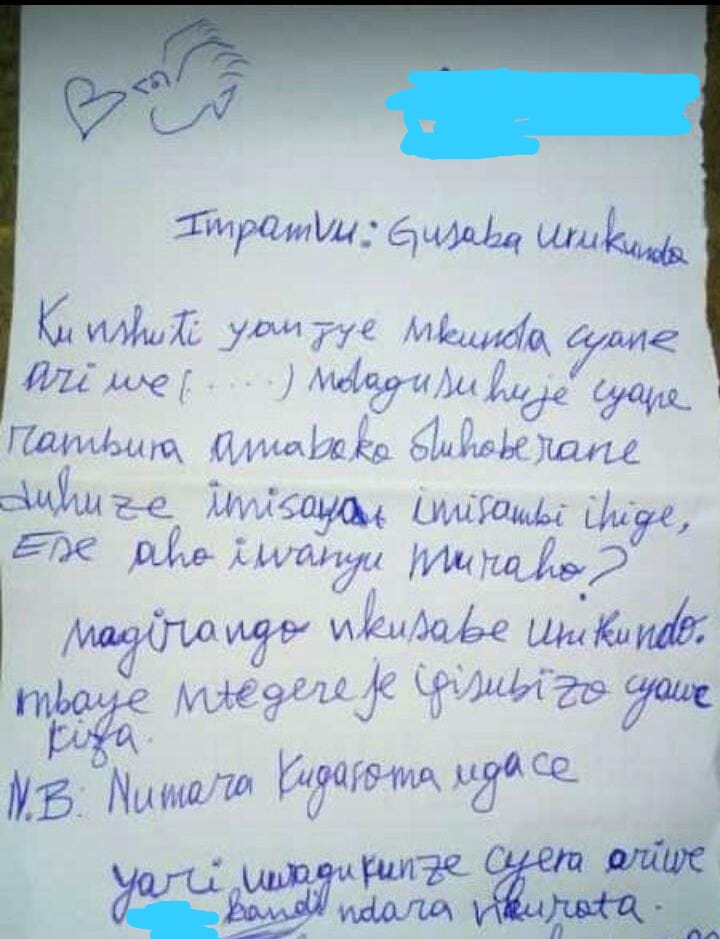 Impamvu: Gusaba urukundo
Ku nshuti yanjye nkunda cyane
ari we (.....) ndagusuhuje cyane
rambura amaboko duhoberane
duhuze imisaya imisambi ihige,
Ese aho iwanyu muraho?
Nagirango nkusabe urukundo.
mbaye ntegereje igisubizo cyawe
kiza.
N.B: Numara kugasoma ugace
yari uwagukunze cyera ariwe
kandi ndara nkurota.